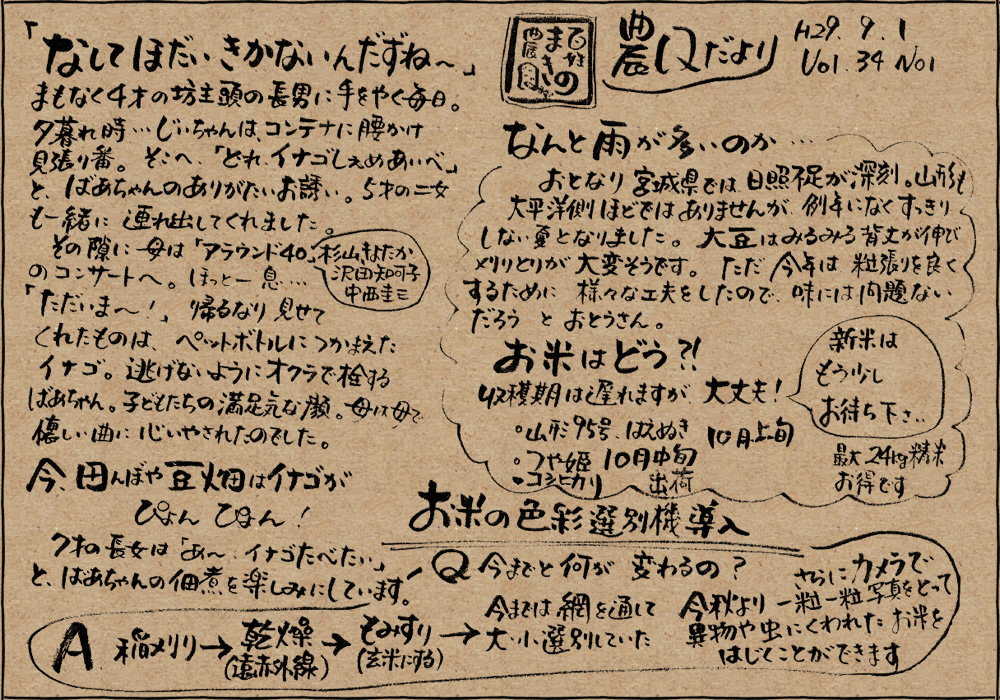 農民だより
H29. 9. 1
Vol. 34 No1
百姓
まきの
農園
「なしてほだい きかないんだずね〜」
まもなく4才の坊主頭の長男に手をやく毎日。
夕暮れ時…じいちゃんは、コンテナに腰かけ
見張り番。そこへ、「どれ、イナゴしぇめあいべ」
と、ばあちゃんのありがたいお誘い。5才の二女
も一緒に連れ出してくれました。
その隙に母は「アラウンド40」
杉山きよたか
沢田知可子
中西圭三
のコンサートへ。ほっと一息…
「ただいま〜!」帰るなり見せて
くれたものは、ペットボトルにつかまえた
イナゴ。逃げないようにオクラで栓する
ばあちゃん。子どもたちの満足気な顔。母は母で
優しい曲に心いやされたのでした。
今、田んぼや豆畑はイナゴが
ぴょん ぴょん!
7才の長女は「あ〜、イナゴたべたい」
と、ばあちゃんの佃煮を楽しみにしています!
なんと雨が多いのか…
おとなり宮城県では、日照不足が深刻。山形も
太平洋側ほどではありませんが、例年になくすっきり
しない夏となりました。大豆はみるみる背丈が伸び
メリとりが大変そうです。ただ今年は粒張りを良く
するために様々な工夫をしたので、味には問題ない
だろうとおとうさん。
お米はどう?!
収穫期は遅れますが、大丈夫!
新米は
もう少し
お待ち下さい
・山形95号、はえぬき 10月上旬
・つや姫 10月中旬
・コシヒカリ 出荷
最大24kg精米
お得です
お米の色彩選別機導入
Q 今までと何が変わるの?
A 稲メリリ→乾燥→もみすり→
(遠赤外線) (玄米にする)
今までは網を通して
大・小選別していた
今秋より
さらにカメラで
一粒一粒写真をとって
異物や虫にくわれたお米を
はじくことができます